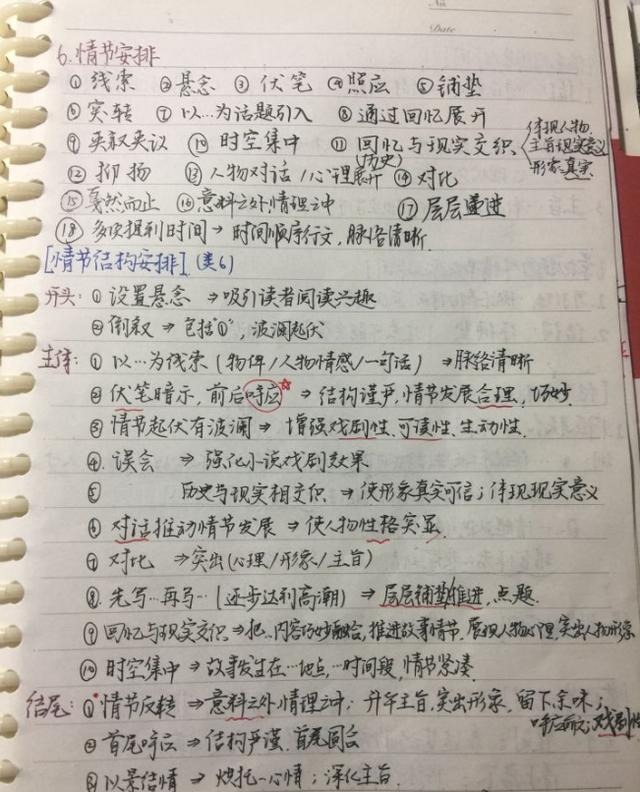 No
Date
6.情节安排
①线索 ②悬念 ③伏笔 ④照应 ⑤铺垫
⑥突转 ⑦以…为话题引入 ⑧通过回忆展开
⑨夹叙夹议 ⑩时空集中 ⑪回忆与现实交织 体现人物
(历史) 主旨现实意义
形象真实
⑫抑扬 ⑬人物对话/心理展开 ⑭对比
⑮戛然而止 ⑯意料之外,情理之中 ⑰层层递进
⑱多次提到时间→时间顺序行文,脉络清晰.
[情节结构安排](类6)
开头:①设置悬念 ⇒吸引读者阅读兴趣
②倒叙⇒包括"①",波澜起伏
主体:①以…为线索(物件/人物情感/一句话) ⇒脉络清晰
②伏笔暗示,前后呼应☆ ⇒结构谨严,情节发展合理,巧妙.
③情节起伏有波澜⇒增强戏剧性,可读性、生动性.
④误会 ⇒强化小说戏剧效果
⑤ 历史与现实相交织⇒使形象真实可信;体现现实意义
⑥对话推动情节发展⇒使人物性格突显.
⑦对比 ⇒突出(心理/形象/主旨)
⑧先写…再写…(逐步达到高潮)⇒层层铺垫推进,点题.
⑨回忆与现实交织⇒把…内容巧妙融合,推进故事情节,展现人物心理,突出人物形象
⑩时空集中⇒故事发生在…地点,…时间段,情节紧凑.
结尾:①情节反转⇒意料之外,情理之中;升华主旨,突出形象,留下余味;
呼应前文;戏剧性
②首尾呼应⇒结构严谨.首尾圆合
③以景结情⇒烘托…心情;深化主旨.